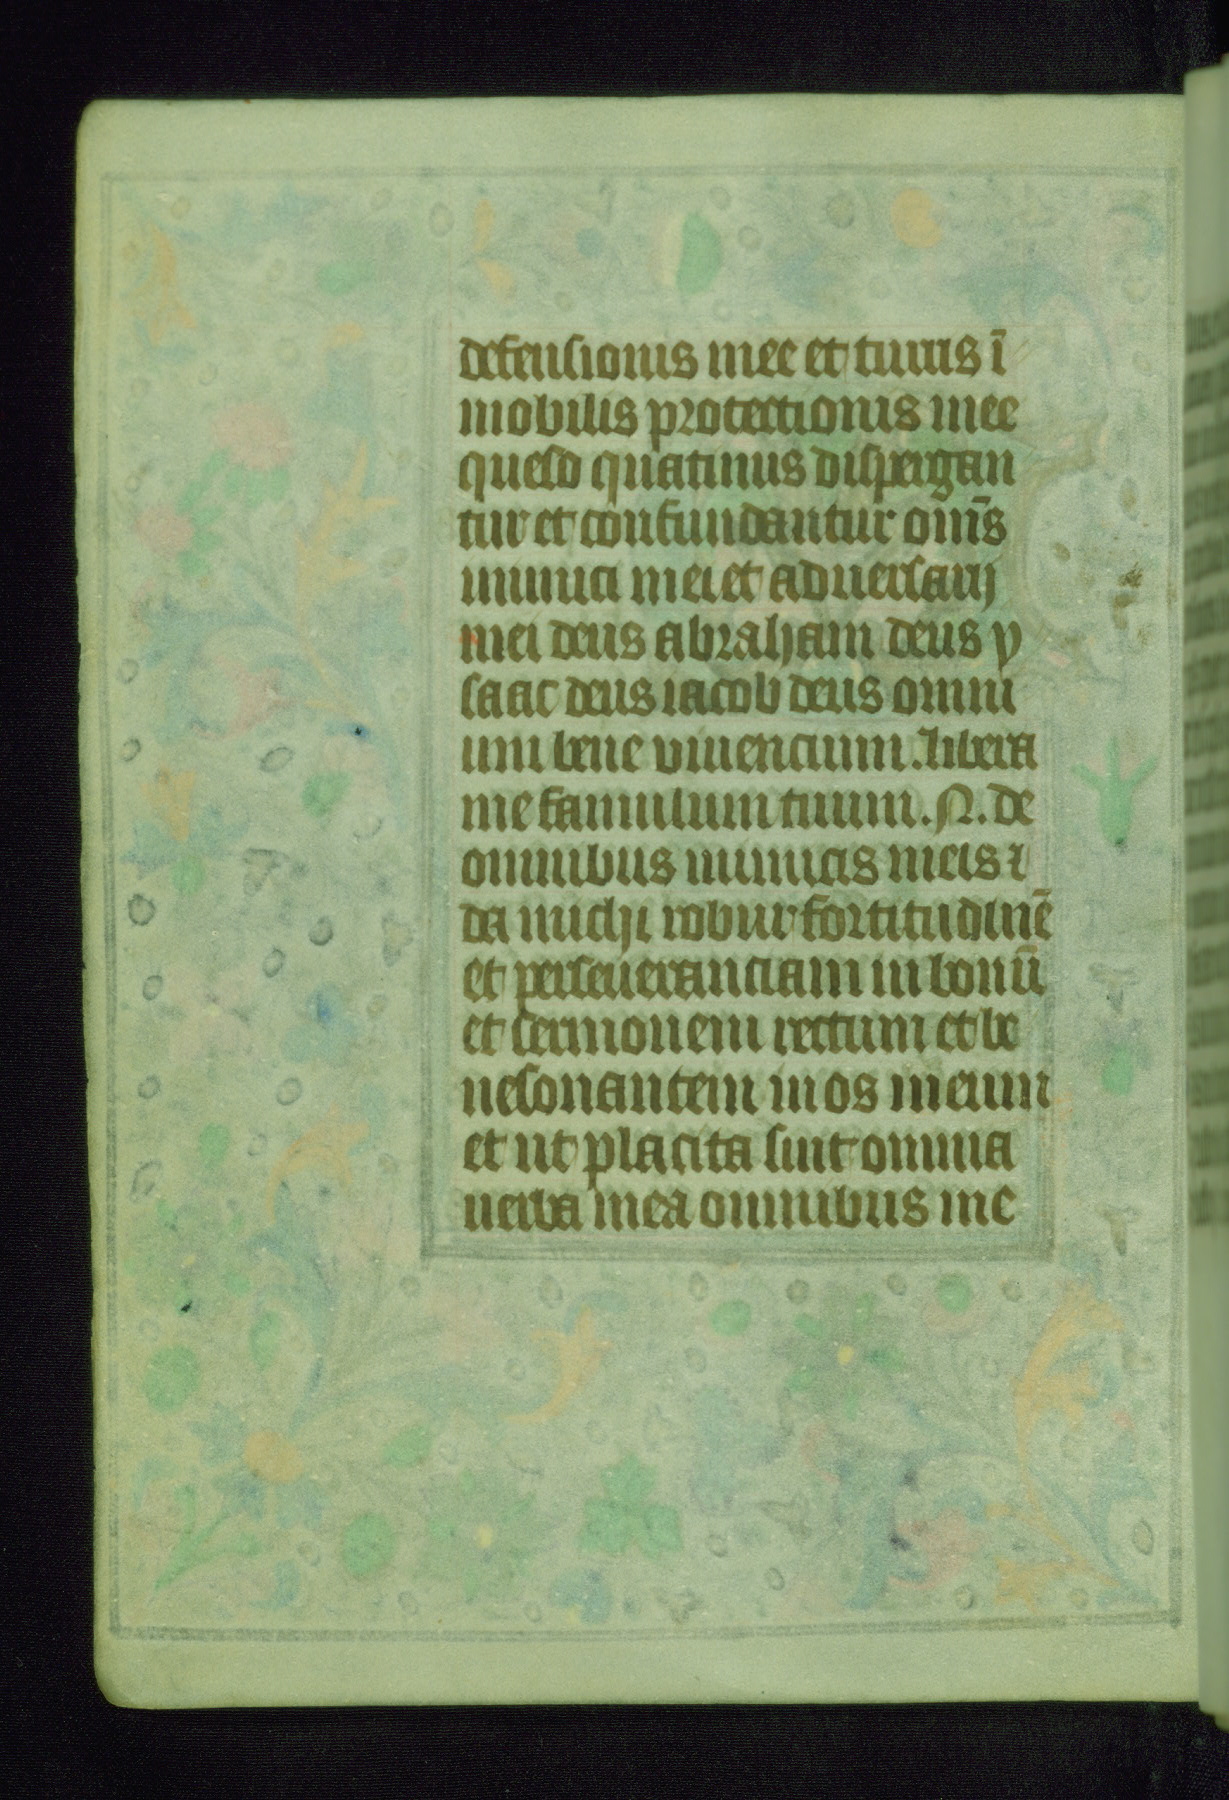 defensionis mee et turris ī
mobilis protectionis mee
queso quatinus dispergan
tur et confundantur om̄s
inimici mei et aduersarij
mei deus abraham deus y
saac deus iacob deus omni
um bene viuencium. libera
me famulum tuum. N. de
omnibus inimicis meis ⁊
da michi robur fortitudinē
et perseueranciam in bonū
et sermonem rectum et be
nesonantem in os meum
et ut placita sint omnia
uerba mea omnibus me